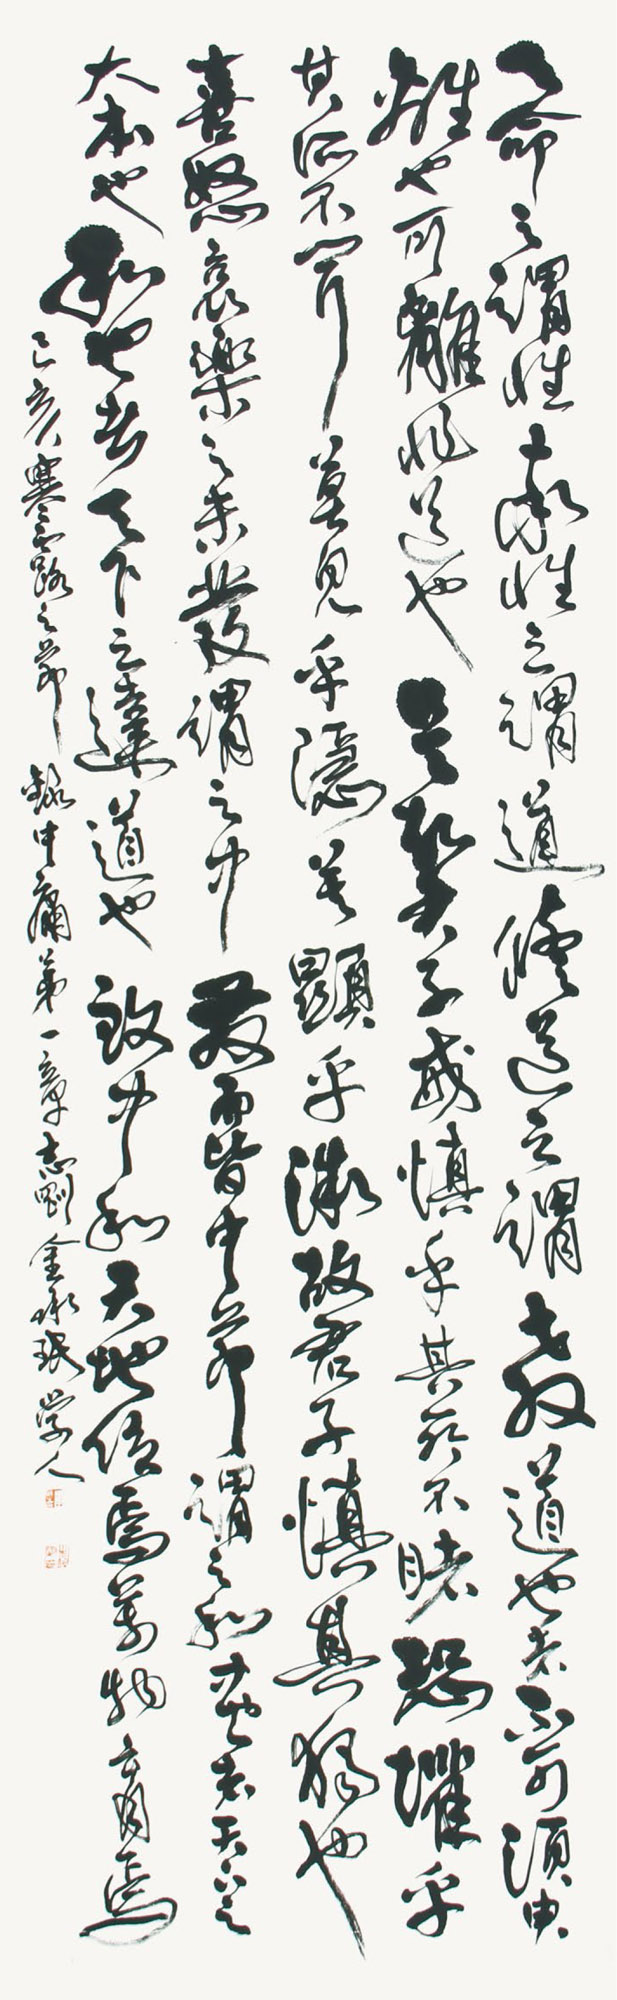 天命之謂性率性之謂道脩道之謂教道也者不可須臾
離也可離非道也是故君子戒慎乎其所不睹恐懼乎
其所不聞莫見乎隱莫顯乎微故君子慎其獨也
喜怒哀樂之未發謂之中發而皆中節謂之和中也者天下之
大本也和也者天下之達道也致中和天地位焉萬物育焉
己亥寒露之節 錄中庸第一章 志剛金永珉學人